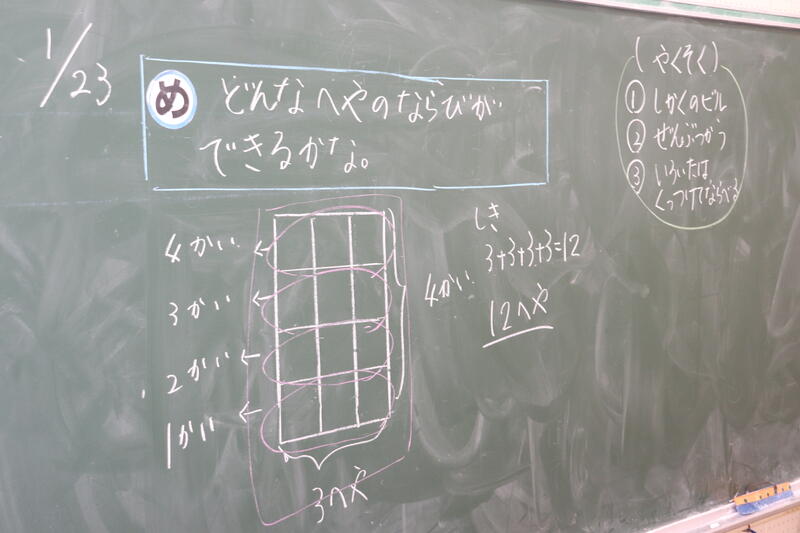 1/23
め どんなへやのならびが
できるかな。
(やくそく)
① しかくのビル
② ぜんぶつかう
③ いろいたは
くっつけてならべる
4かい
3かい
2かい
1かい
3へや
4かい
しき
3+3+3+3=12
12へや